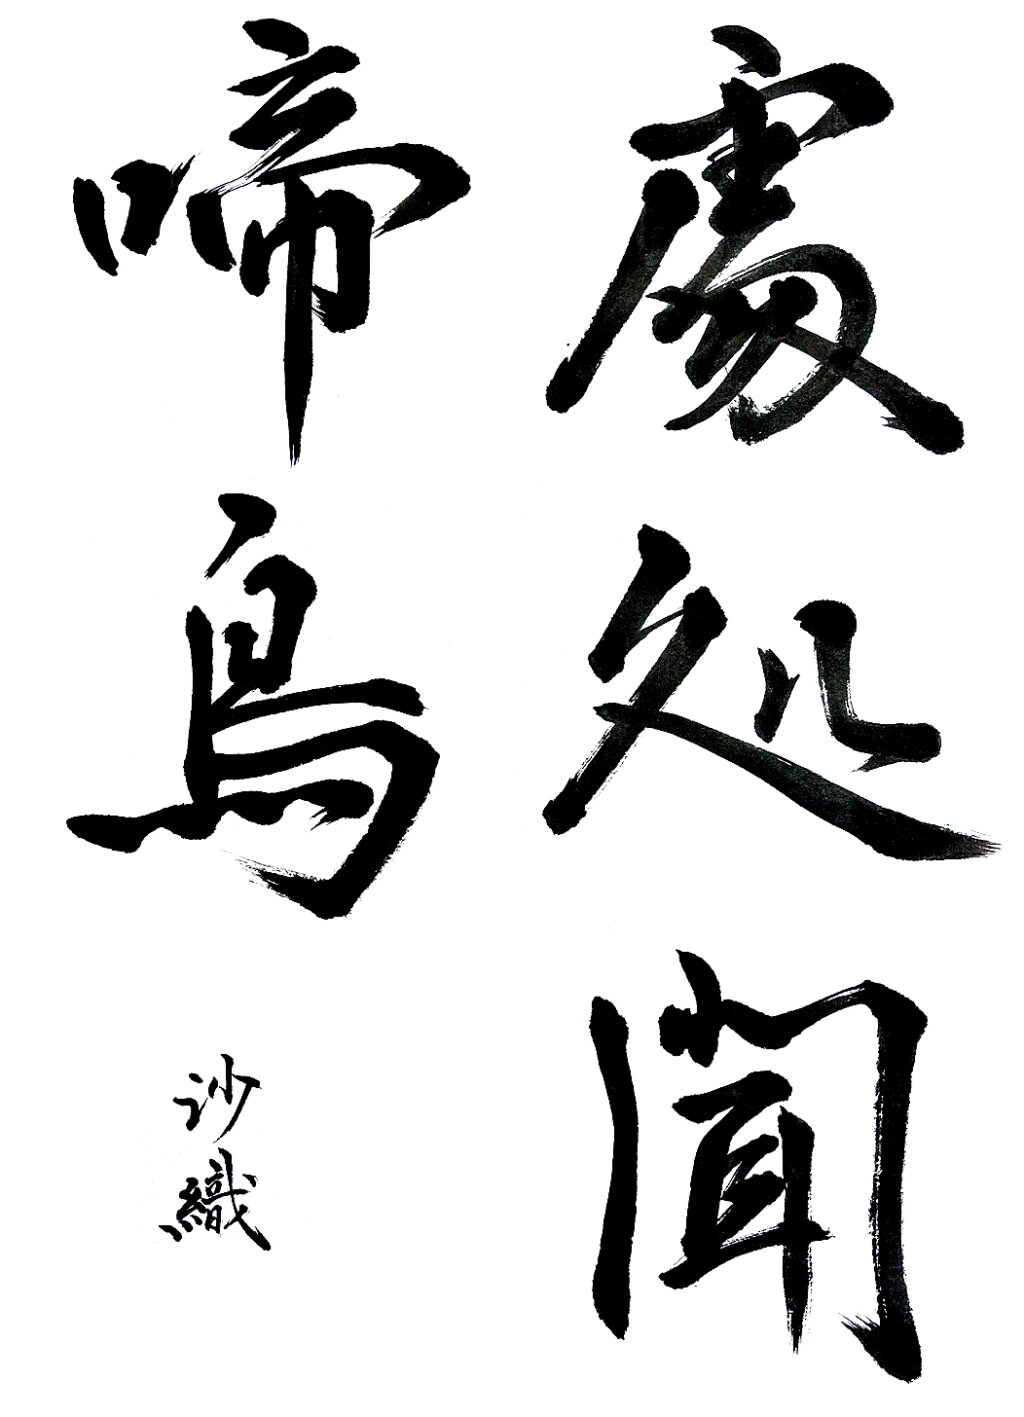 處処聞
啼鳥
沙織